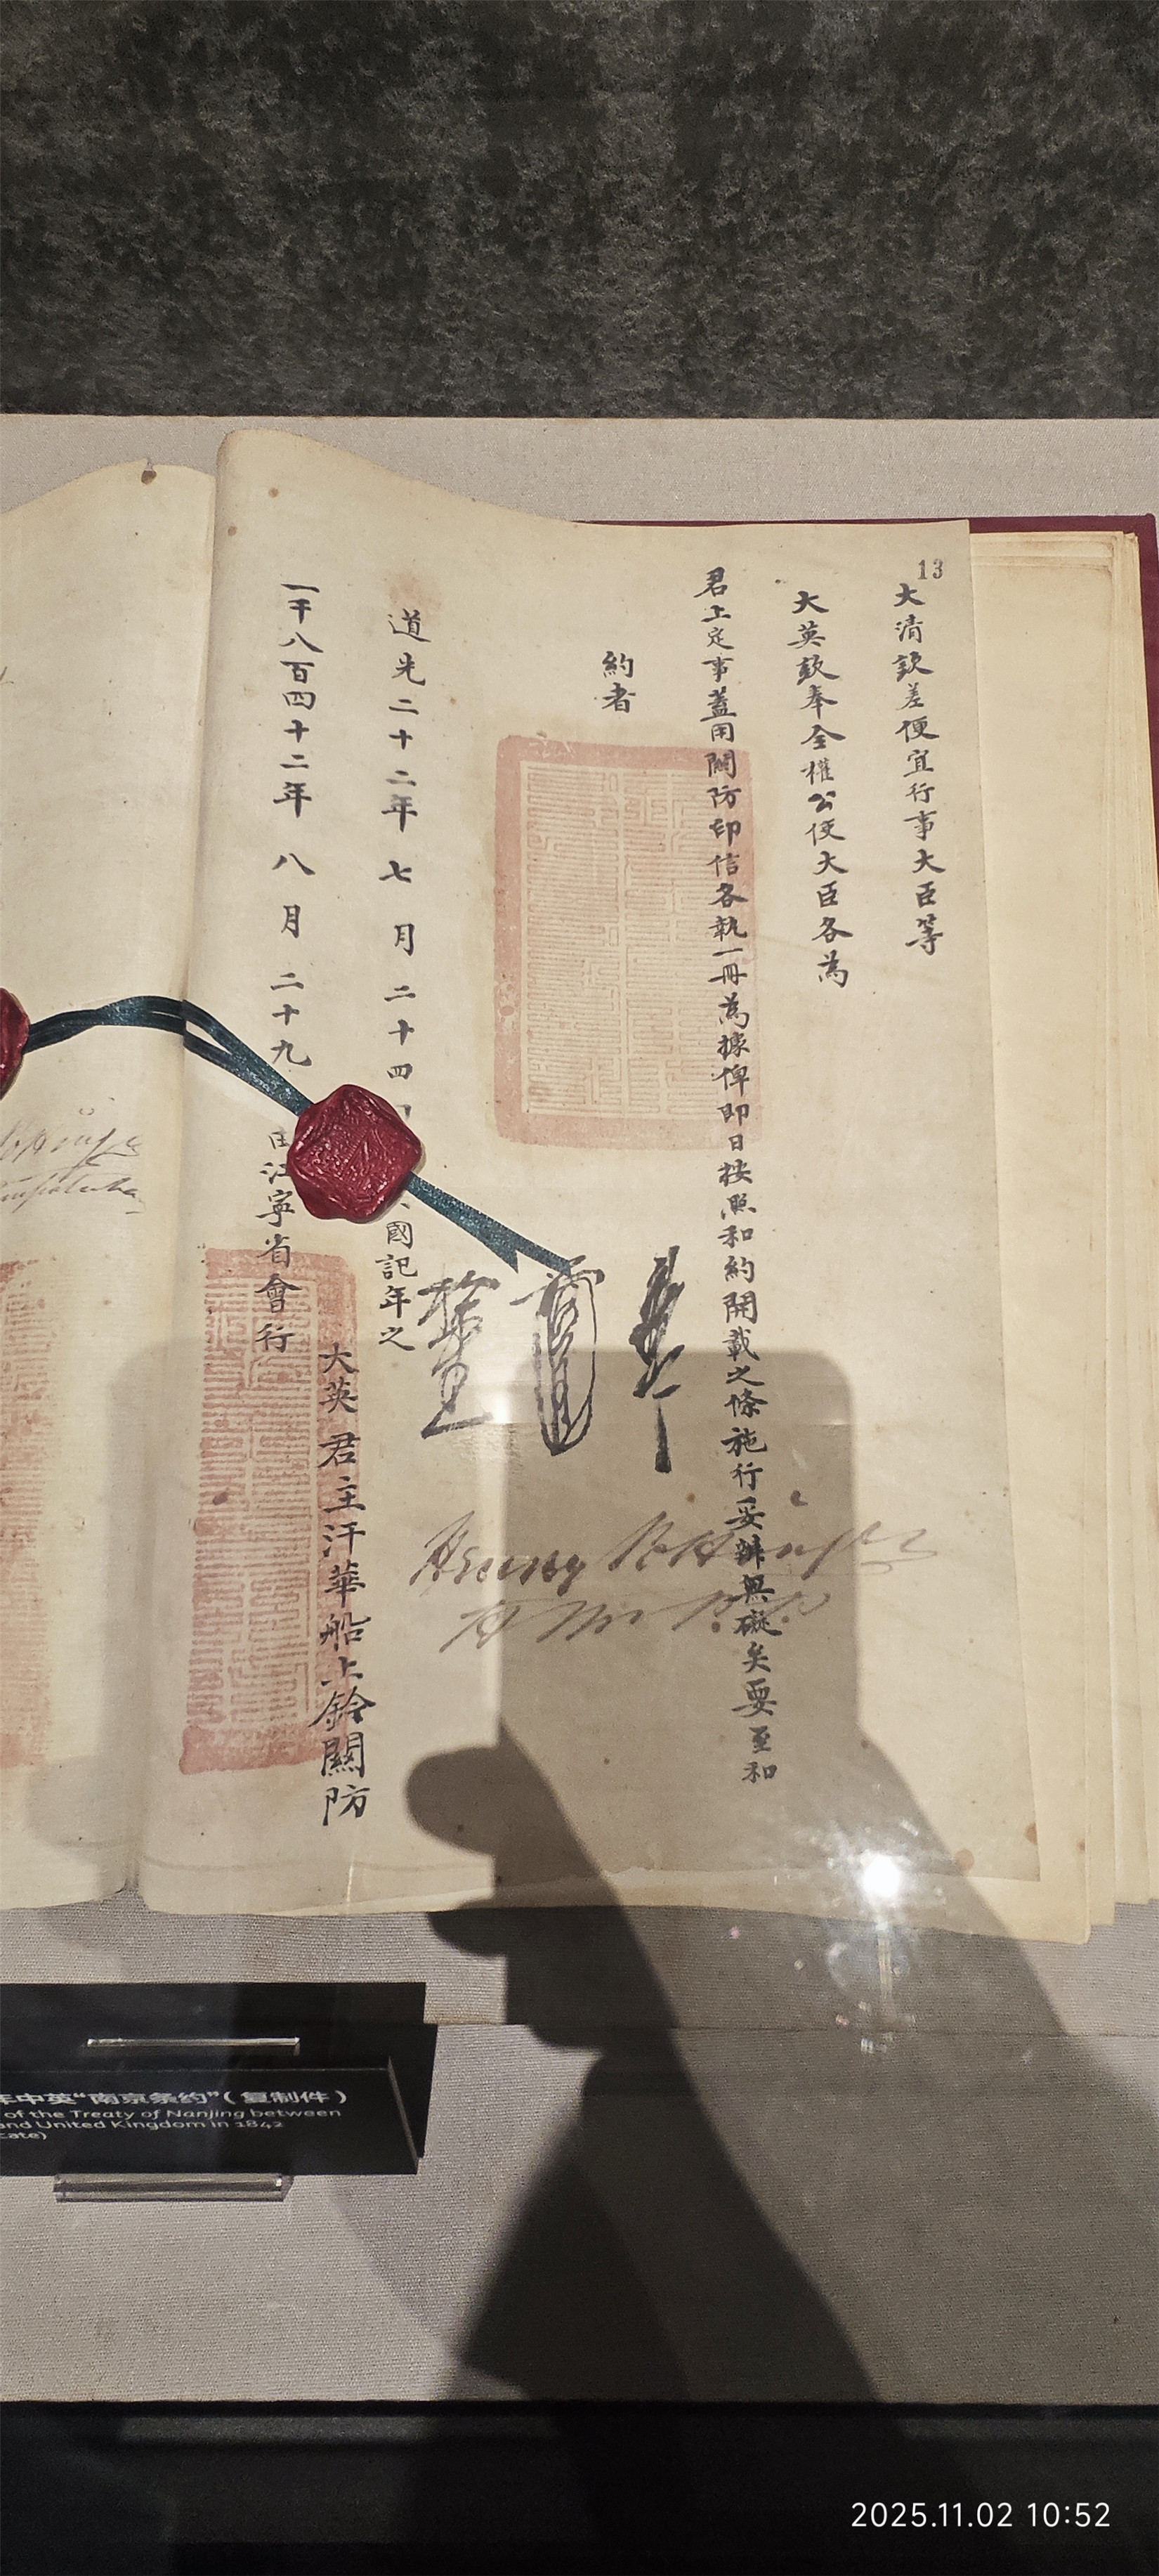 13
大清欽差便宜行事大臣等
大英欽奉全權公使大臣各為
君上定事蓋用關防印信各執一冊為據俾即日按照和約開載之條施行妥辦無礙矣要至和
約者
道光二十二年七月二十四 國記年之
一千八百四十二年八月二十九 由江寧省會行
大英君主汗華船上鈐關防
Henry Pottinger
年中英“南京条约”(复制件)
of the Treaty of Nanjing between
and United Kingdom in 1842
cate)
2025.11.02 10:52